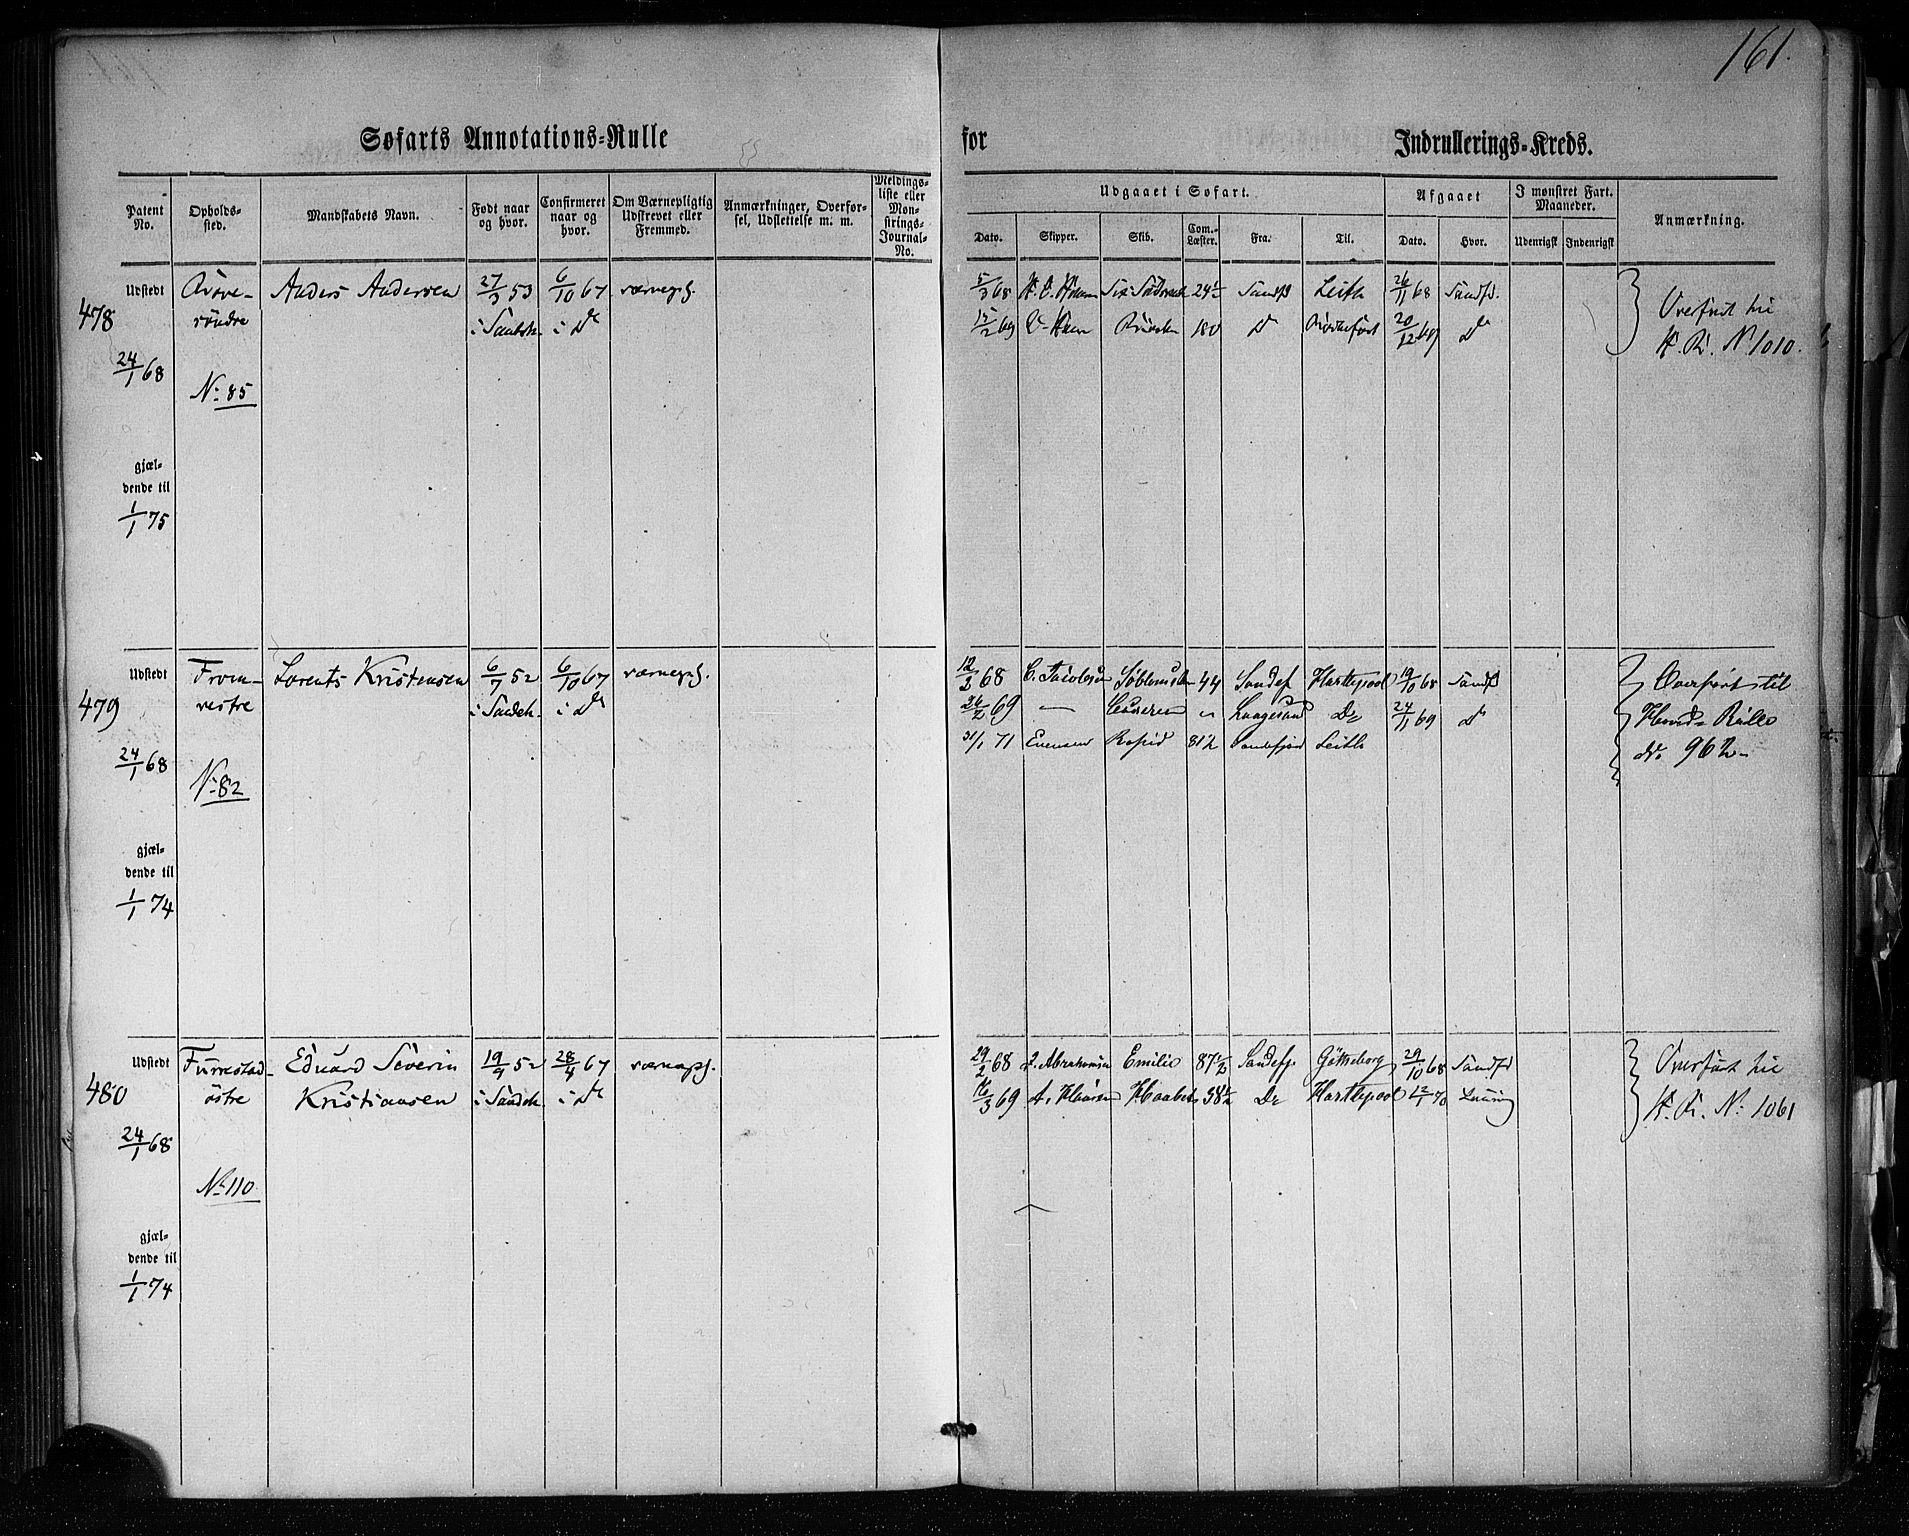 161.
Søfarts Annotations-Rulle for Indrullerings-Kreds.
Patent No.
Opholds-sted.
Mandskabets Navn.
Født naar og hvor.
Confirmeret naar og hvor.
Om Værnepligtig Udskrevet eller Fremmed.
Anmærkninger, Overførsel, Udslettelse m. m.
Meldings-liste eller Mønstrings-Journal-No.
Udgaaet i Søfart.
Dato.
Skipper.
Skib.
Com.-Læster.
Fra.
Til.
Afgaaet
Dato.
Hvor.
I mønstret Fart. Maaneder.
Udenrigsk
Indenrigsk
Anmærkning.
Udstedt Anders Andersen 27/3 53 6/10 67 værnepl.
478 søndre i Sandeh. i Do
24/1 68
No 85
gjæl-
dende til
1/1 75
5/3 68 24 1/2 Sandefj Leith 26/11 68 Sandfj.
15/2 69 180 Do 20/12 69 Do
Overført til
H. R. No 1010.
Udstedt Lorents Kristensen 6/7 52 6/10 67 værnepl.
479 vestre i Sandeh. i Do
24/1 68
No 82
gjæl-
dende til
1/1 74
12/3 68 C. Jacobsen 44 Sandef Hartlepool 19/10 68 Sandfj
26/2 69 — " Langesund Do 24/11 69 Do
31/1 71 Evensen Rapid 81 2 Sandefjord Leith
Overført til
Hoved-Rulle
No. 962
Udstedt Furrestad Eduard Severin 19/9 52 28/4 67 værnepl.
480 østre Kristiansen i Sandeh. i Do
24/1 68
No 110
gjæl-
dende til
1/1 74
29/2 68 Abrahamsen Emilie 87 1/2 Sandefj. Götheborg 29/10 68 Sandfd
16/3 69 A. Hansen Haabet 58 1/2 Do Hartlepool 12/1 70
Overført til
H. R. No: 1061